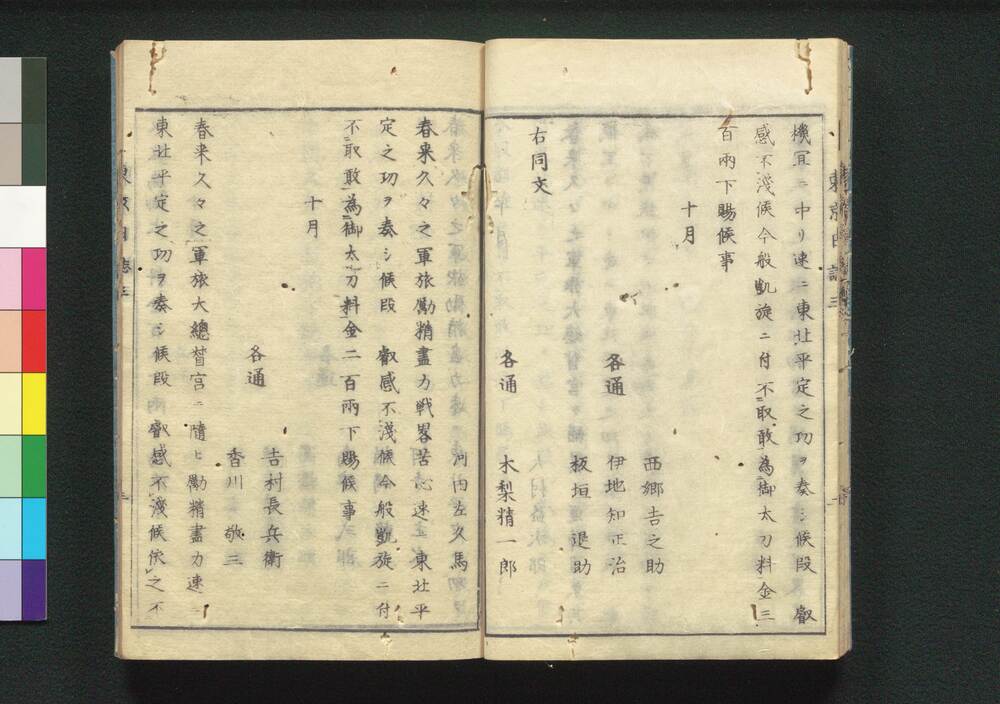 機冝ニ中リ速ニ東北平定之功ヲ奏シ候段　叡
感不淺候今般凱旋ニ付不取敢為御太刀料金三
百兩下賜候事
十月
西郷吉之助
各通　伊地知正治
板垣退助
右同文
各通　木梨精一郎
河内左久馬
春来久々之軍旅勵精盡力戦畧苦心速ニ東北平
定之功ヲ奏シ候段　叡感不淺候今般凱旋ニ付
不取敢為御太刀料金二百兩下賜候事
十月
吉村長兵衛
各通
香川敬三
春来久々之軍旅大總督宮ニ隨ヒ勵精盡力速ニ
東北平定之功ヲ奏シ候段　叡感不淺候依之不